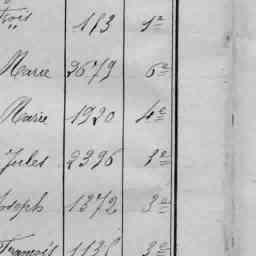 Frois 113 1e
Marie 3679 6e
Marie 1920 4e
Jules 2396 3e
Joseph 1372 3e
François 1135 3e